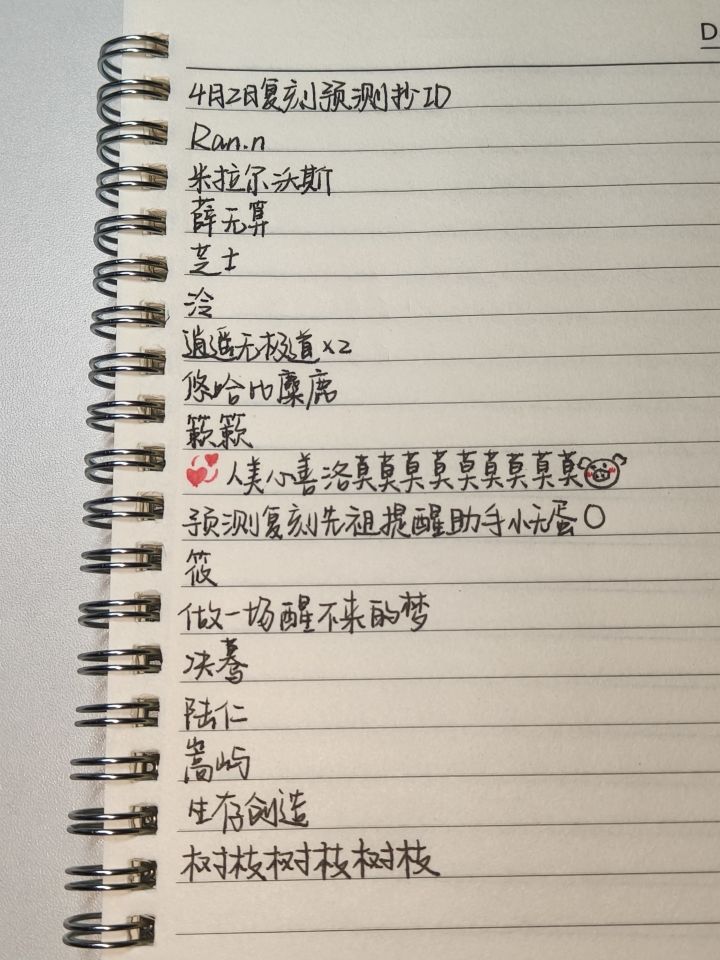 D
4月2日复刻预测抄ID
Ran.n
米拉尔沃斯
薛无算
芝士
泠
逍遥无极道x2
悠哈比麋鹿
籁籁
💞人美心善洛莫莫莫莫莫莫莫莫莫🐷
预测复刻先祖提醒助手小无蛋〇
筱
做一场醒不来的梦
决骞
陆仁
嵩屿
生存创造
树枝树枝树枝